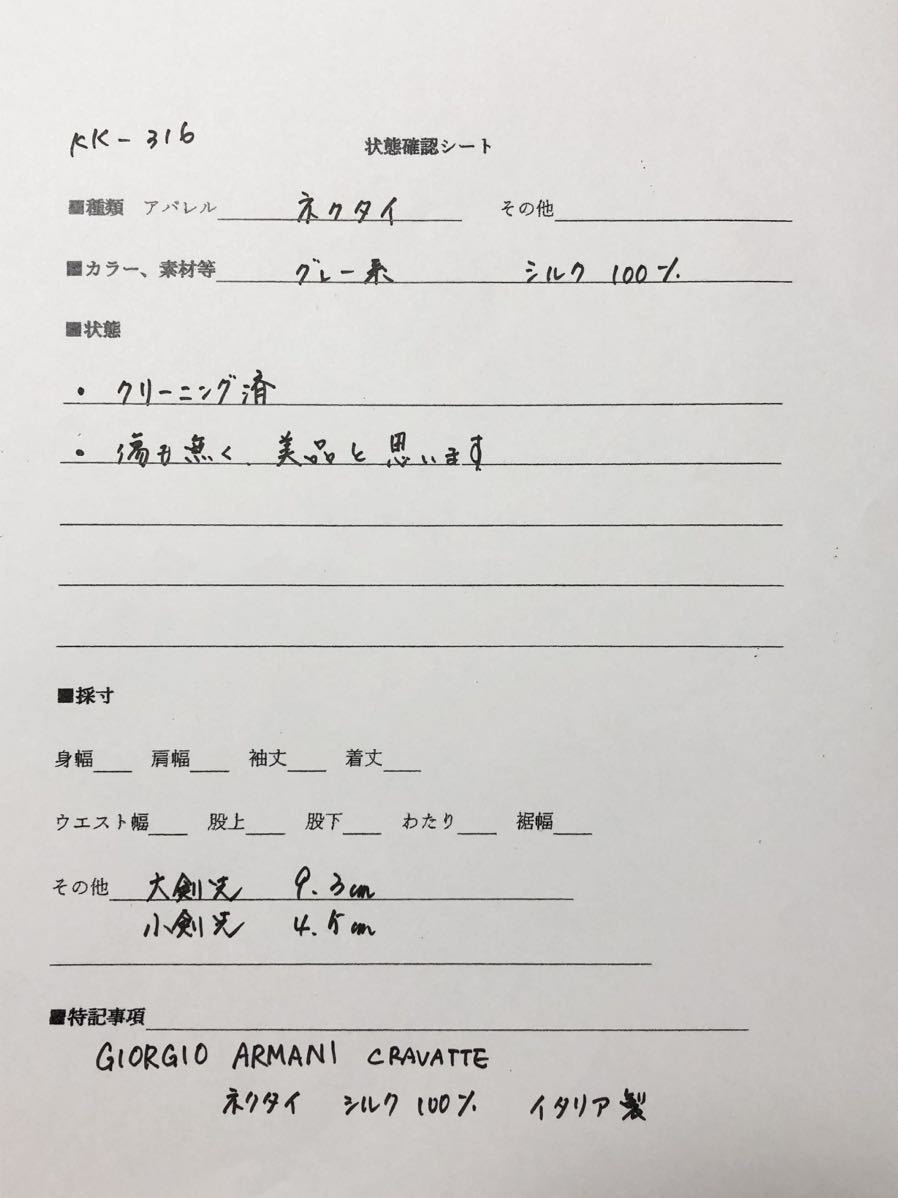 KK-316 状態確認シート
■種類 アパレル ネクタイ その他
■カラー、素材等 グレー系 シルク 100%
■状態
・クリーニング済
・傷も無く、美品と思います
■採寸
身幅 肩幅 袖丈 着丈
ウエスト幅 股上 股下 わたり 裾幅
その他 大剣先 9.3cm
小剣先 4.5cm
■特記事項
GIORGIO ARMANI CRAVATTE
ネクタイ シルク 100% イタリア製